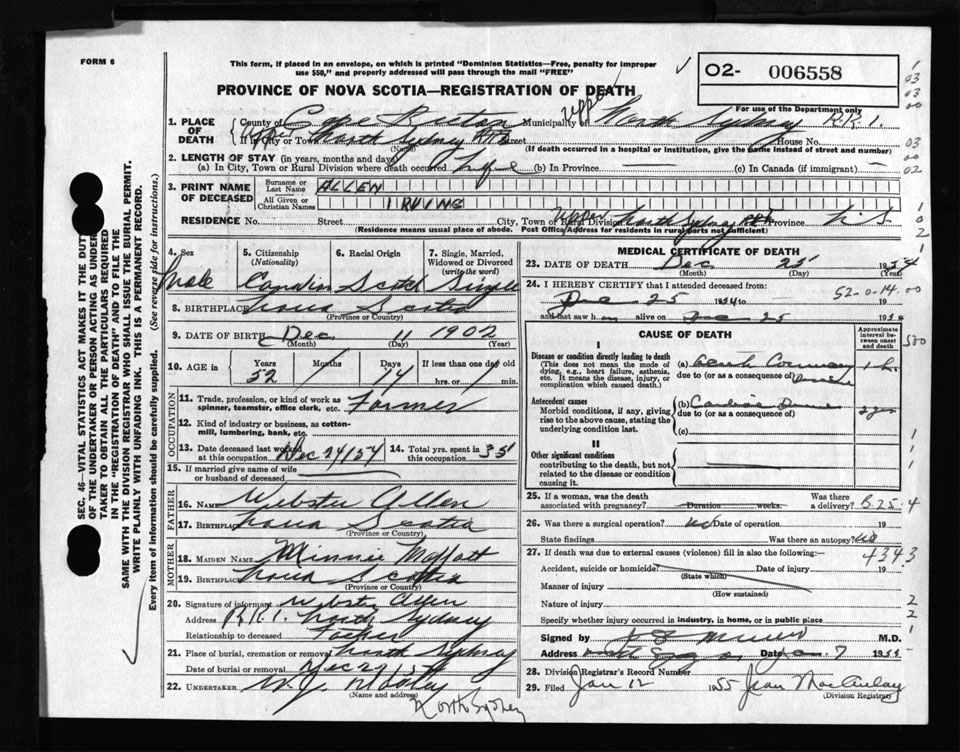 FORM 6
This form, if placed in an envelope, on which is printed "Dominion Statistics—Free, penalty for improper
use $50," and properly addressed will pass through the mail "FREE"
PROVINCE OF NOVA SCOTIA—REGISTRATION OF DEATH
02- 006558
For use of the Department only
1. PLACE OF DEATH
County of Cape Breton Municipality of Upper North Sydney R.R.1.
If in City or Town Upper North Sydney Street House No.
(Name) (If death occurred in a hospital or institution, give the name instead of street and number)
2. LENGTH OF STAY (in years, months and days)
(a) In City, Town or Rural Division where death occurred Life (b) In Province (c) In Canada (if immigrant) —
3. PRINT NAME OF DECEASED
Surname or Last Name ALLEN
All Given or Christian Names IRVING
RESIDENCE No. Street City, Town or Rural Division Upper North Sydney Province N.S.
(Residence means usual place of abode. Post Office Address for residents in rural parts not sufficient)
4. Sex Male
5. Citizenship (Nationality) Canadian
6. Racial Origin Scotch
7. Single, Married, Widowed or Divorced (write the word) Single
8. BIRTHPLACE Nova Scotia
(Province or Country)
9. DATE OF BIRTH Dec 11 1902
(Month) (Day) (Year)
10. AGE in Years 52 Months Days 14 If less than one day old hrs. or min.
OCCUPATION
11. Trade, profession, or kind of work as spinner, teamster, office clerk, etc. Farmer
12. Kind of industry or business, as cotton-mill, lumbering, bank, etc.
13. Date deceased last worked at this occupation Dec 24/54
14. Total yrs. spent in this occupation 35
15. If married give name of wife or husband of deceased
FATHER
16. NAME Webster Allen
17. BIRTHPLACE Nova Scotia
(Province or Country)
MOTHER
18. MAIDEN NAME Minnie Moffatt
19. BIRTHPLACE Nova Scotia
(Province or Country)
20. Signature of informant Webster Allen
Address R.R.1. North Sydney
Relationship to deceased Father
21. Place of burial, cremation or removal North Sydney
Date of burial or removal Dec 27/54
22. UNDERTAKER W.J. Mooney
(Name and address)
North Sydney
MEDICAL CERTIFICATE OF DEATH
23. DATE OF DEATH Dec 25 1954
(Month) (Day) (Year)
24. I HEREBY CERTIFY that I attended deceased from:
Dec 25 1954 to 19
52-0-14.00
and last saw h alive on Dec 25 1954
CAUSE OF DEATH
Approximate interval between onset and death
I
Disease or condition directly leading to death
(This does not mean the mode of dying, e.g., heart failure, asthenia, etc. It means the disease, injury, or complication which caused death.)
(a) Coronary
due to (or as a consequence of)
Antecedent causes
Morbid conditions, if any, giving rise to the above cause, stating the underlying condition last.
(b)
due to (or as a consequence of)
(c)
II
Other significant conditions
contributing to the death, but not related to the disease or condition causing it.
25. If a woman, was the death associated with pregnancy? Duration weeks. Was there a delivery? B.25.4
26. Was there a surgical operation? no Date of operation 19
State findings Was there an autopsy? no
27. If death was due to external causes (violence) fill in also the following:—
4343
Accident, suicide or homicide? Date of injury 19
(State which)
Manner of injury
(How sustained)
Nature of injury
Specify whether injury occurred in industry, in home, or in public place
Signed by M.D.
Address Date Jan 7 1955
28. Division Registrar's Record Number
29. Filed Jan 12 1955 Jean MacAulay
(Division Registrar)
SEC. 46—VITAL STATISTICS ACT MAKES IT THE DUTY
OF THE UNDERTAKER OR PERSON ACTING AS UNDER-
TAKER TO OBTAIN ALL THE PARTICULARS REQUIRED
IN THE "REGISTRATION OF DEATH" AND TO FILE THE
SAME WITH THE DIVISION REGISTRAR WHO SHALL ISSUE THE BURIAL PERMIT.
WRITE PLAINLY WITH UNFADING INK. THIS IS A PERMANENT RECORD.
Every item of information should be carefully supplied. (See reverse side for instructions.)